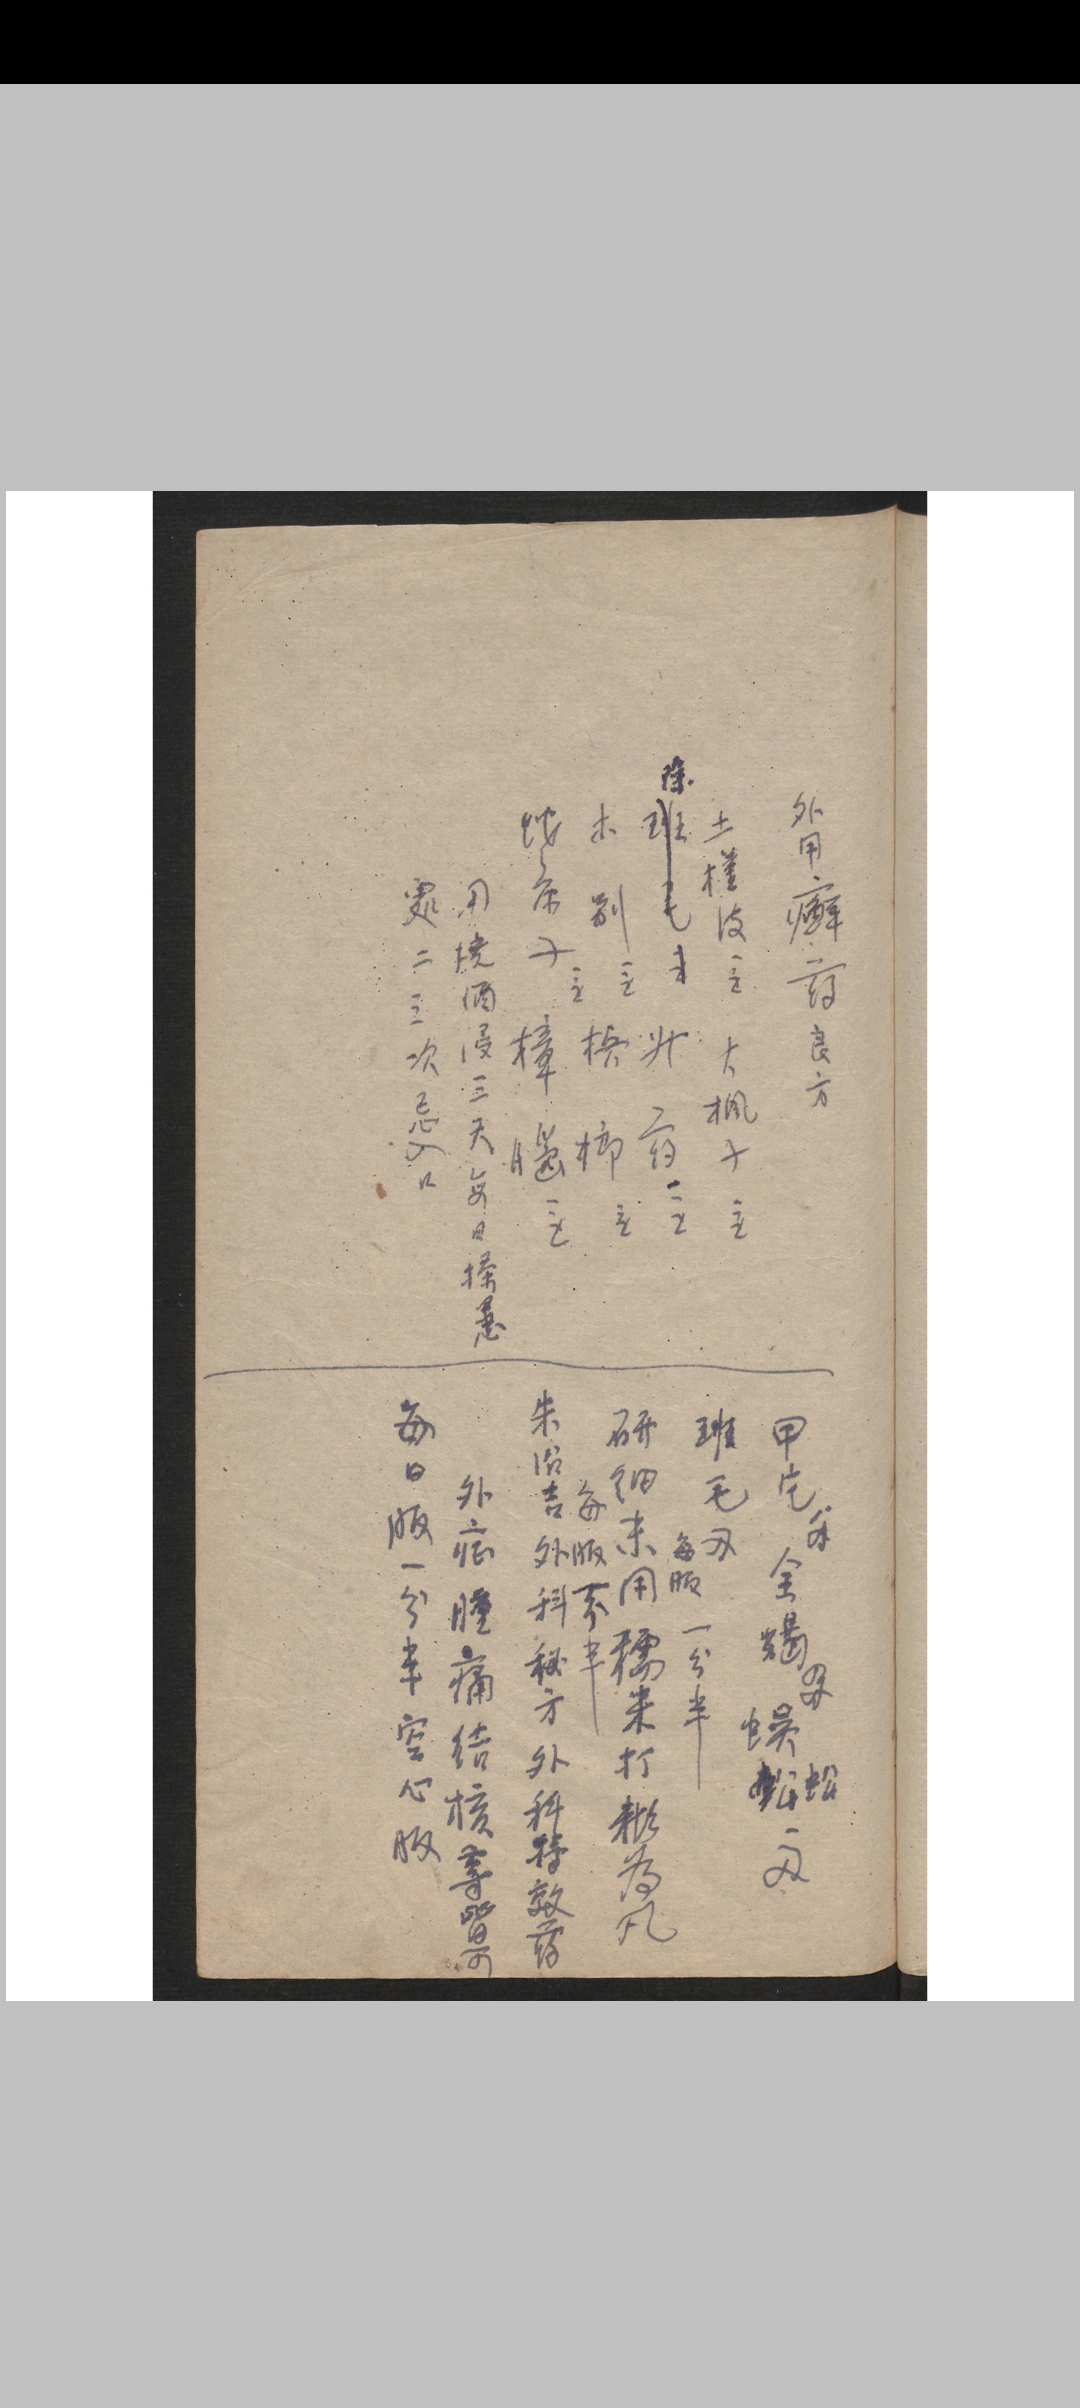 外用癣药良方
土槿皮三 大楓子三
班毛 除
升药三
木别三 梹榔三
蛇床子三 樟腦三
用烧酒浸三天每日搽患
處二三次忌入口
甲片 全蝎 蜈蚣
班毛 每服一分半
研细末用糯米打糊為丸
每服一分半
朱 吉外科秘方外科特效药
外症腫痛结核等皆可
每日服一分半空心服